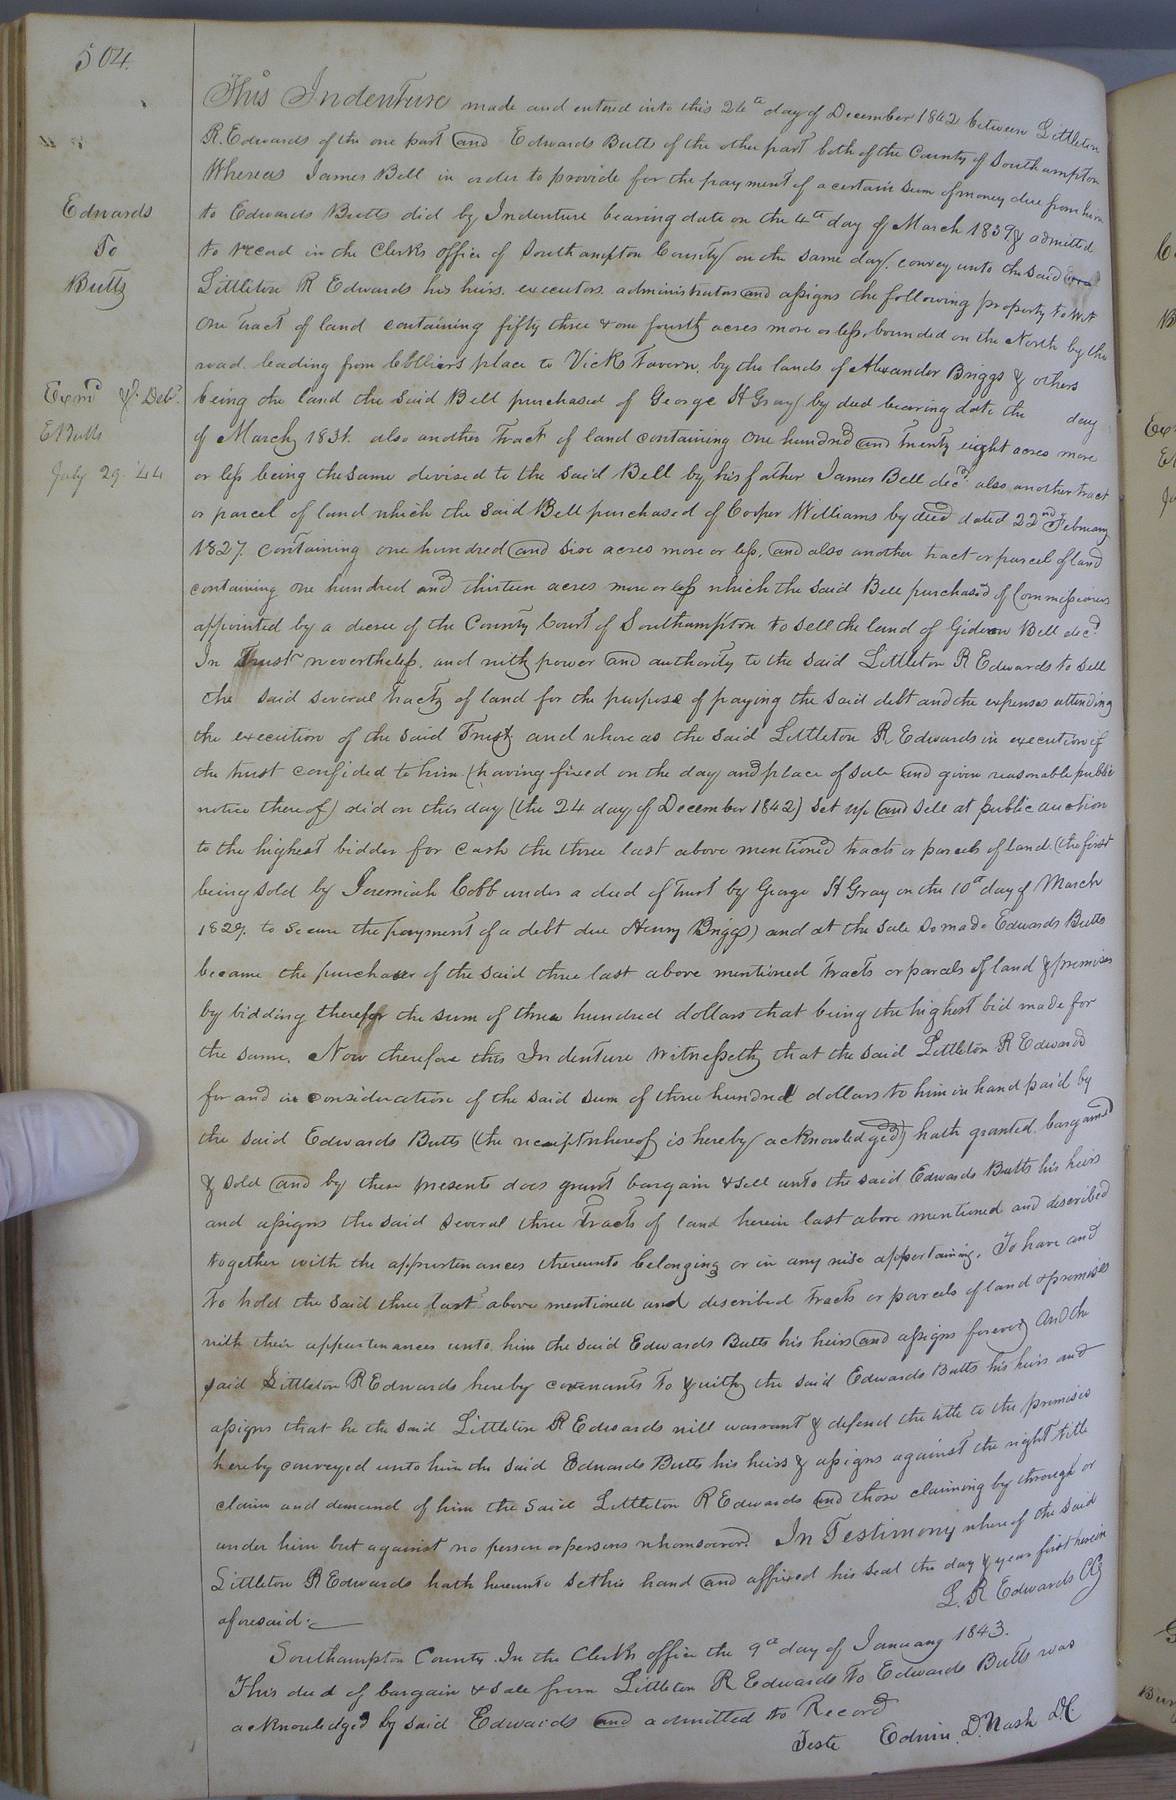 504.
Edwards
To
Butts
Exmd & Deld.
E Butts
July 29. '44
This Indenture made and entered into this 24th day of December 1842 between Littleton
R. Edwards of the one part and Edwards Butts of the other part both of the County of Southampton
Whereas James Bell in order to provide for the payment of a certain sum of money due from him
to Edwards Butts did by Indenture bearing date on the 4th day of March 1839 & admitted
to record in the Clerks office of Southampton County (on the same day) convey unto the said
Littleton R Edwards his heirs. executors administrators and assigns the following property to wit
One tract of land containing fifty three & one fourth acres more or less, bounded on the North by the
road leading from Colliers place to Vicks Tavern, by the lands of Alexander Briggs & others
being the land the said Bell purchased of George H Gray by deed bearing date the day
of March 1831. also another tract of land containing one hundred and twenty eight acres more
or less being the same devised to the said Bell by his father James Bell decd. also another tract
or parcel of land which the said Bell purchased of Cosper Williams by deed dated 22nd February
1827. containing one hundred and six acres more or less, and also another tract or parcel of land
containing one hundred and thirteen acres more or less which the said Bell purchased of Commissioners
appointed by a decree of the County Court of Southampton to sell the land of Gideon Bell decd.
In Trust nevertheless, and with power and authority to the said Littleton R Edwards to sell
the said several tracts of land for the purpose of paying the said debt and the expenses attending
the execution of the said Trust and whereas the said Littleton R Edwards in execution of
the trust confided to him (having fixed on the day and place of sale and given reasonable public
notice thereof) did on this day (the 24 day of December 1842) set up and sell at public auction
to the highest bidder for cash the three last above mentioned tracts or parcels of land. (the first
being sold by Jeremiah Cobb under a deed of trust by George H Gray on the 10th day of March
1829. to secure the payment of a debt due Henry Briggs) and at the sale so made Edwards Butts
became the purchaser of the said three last above mentioned tracts or parcels of land & premises
by bidding therefor the sum of three hundred dollars that being the highest bid made for
the same. Now therefore this Indenture Witnesseth that the said Littleton R Edwards
for and in consideration of the said sum of three hundred dollars to him in hand paid by
the said Edwards Butts (the receipt whereof is hereby acknowledged) hath granted bargained
& sold and by these presents does grant bargain & sell unto the said Edwards Butts his heirs
and assigns the said several three tracts of land herein last above mentioned and described
together with the appurtenances thereunto belonging or in any wise appertaining. To have and
to hold the said three last above mentioned and described tracts or parcels of land & premises
with their appurtenances unto him the said Edwards Butts his heirs and assigns forever And the
said Littleton R Edwards hereby covenants to & with the said Edwards Butts his heirs and
assigns that he the said Littleton R Edwards will warrant & defend the title to the premises
hereby conveyed unto him the said Edwards Butts his heirs & assigns against the right title
claim and demand of him the said Littleton R Edwards and those claiming by through or
under him but against no person or persons whomsoever. In Testimony whereof the said
Littleton R Edwards hath hereunto set his hand and affixed his seal the day & year first herein
aforesaid.
L. R Edwards
Southampton County. In the Clerks office the 9th day of January 1843.
This deed of bargain & sale from Littleton R Edwards to Edwards Butts was
acknowledged by said Edwards and admitted to Record
Teste Edwin D. Nash DC